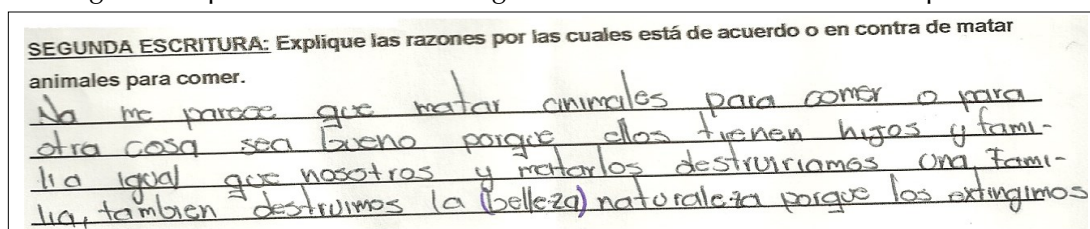 SEGUNDA ESCRITURA: Explique las razones por las cuales está de acuerdo o en contra de matar
animales para comer.
No me parece que matar animales para comer o para
otra cosa sea bueno porque ellos tienen hijos y fami-
lia igual que nosotros y matarlos destruiriamos una fami-
lia, tambien destruimos la (belleza) naturaleza porque los extingimos